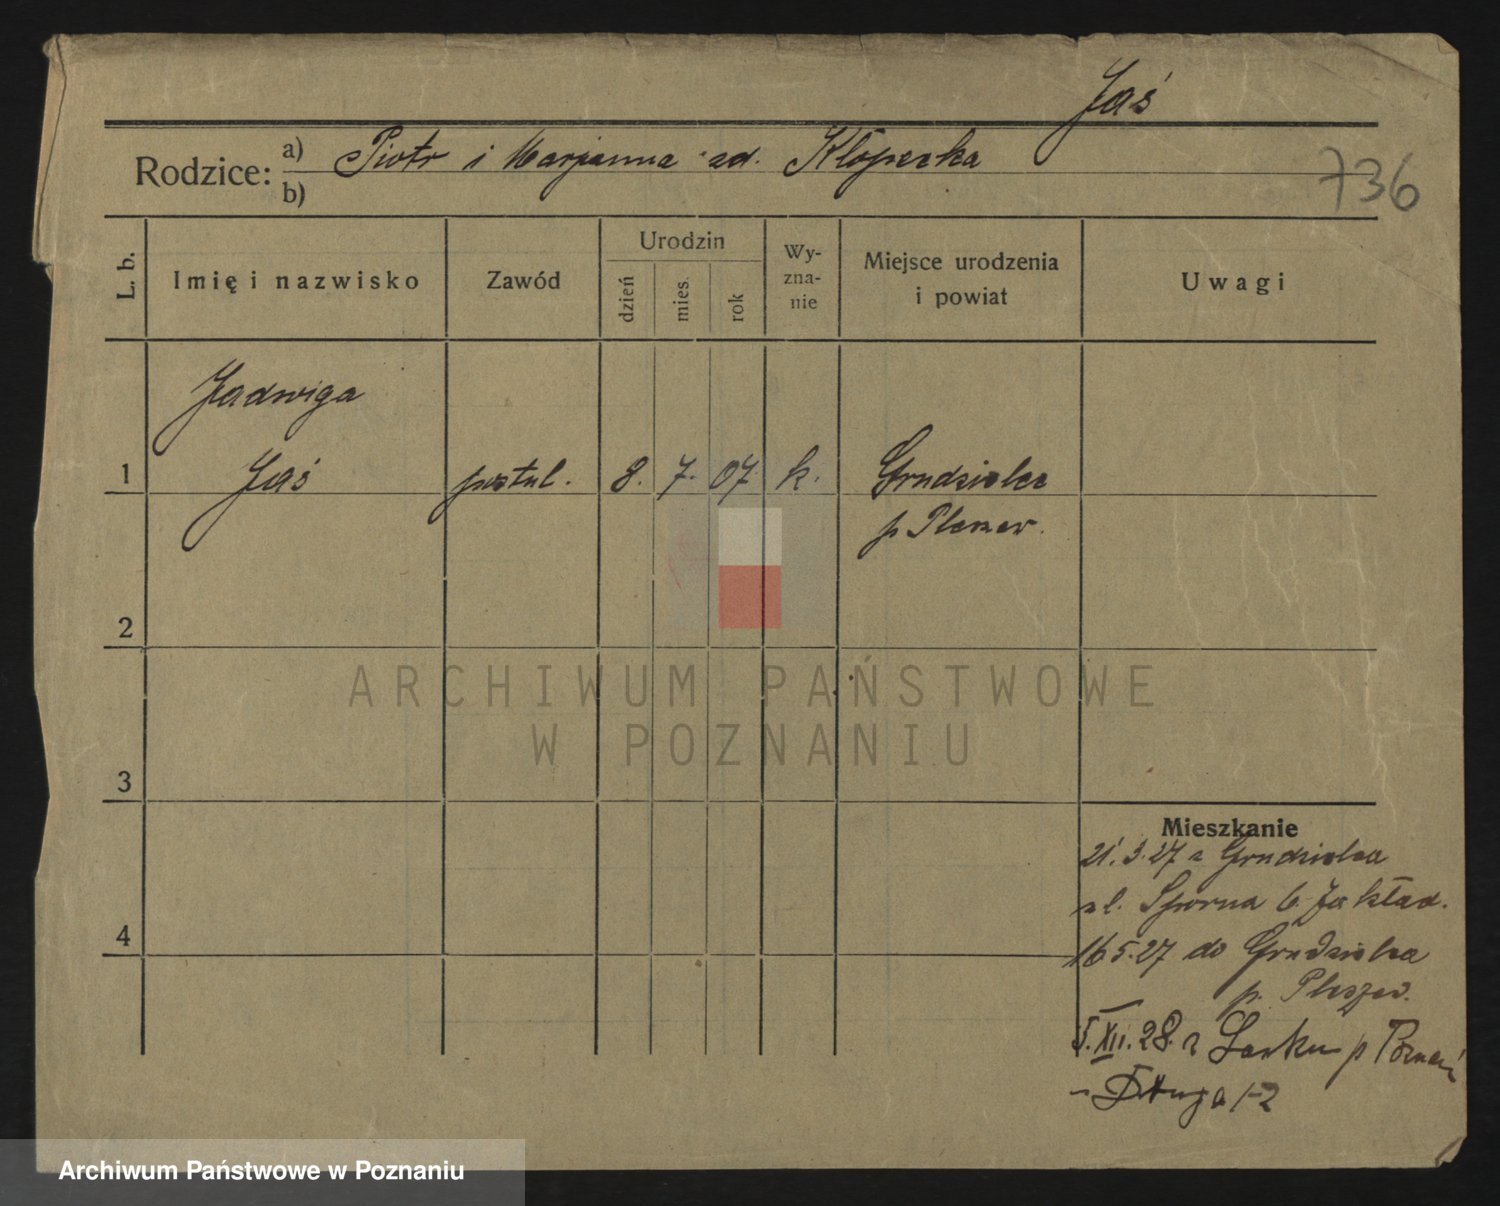 Jaś
Rodzice: a) Piotr i Marjanna zd. Kłopecka
b)
736
L. b.
Imię i nazwisko
Zawód
Urodzin
dzień
mies.
rok
Wy-
zna-
nie
Miejsce urodzenia
i powiat
Uwagi
Jadwiga
1 Jaś postul. 8. 7. 07 k. Grudzielec
p Pleszew.
2
3
4
Mieszkanie
21.3.27 z Grudzielca
ul. Sporna 6. Zakład.
16 5.27 do Grudzielca
p. Pleszew.
5.XII.28. z Lasku p Poznań
– Długa 1-2
ARCHIWUM PAŃSTWOWE
W POZNANIU
Archiwum Państwowe w Poznaniu